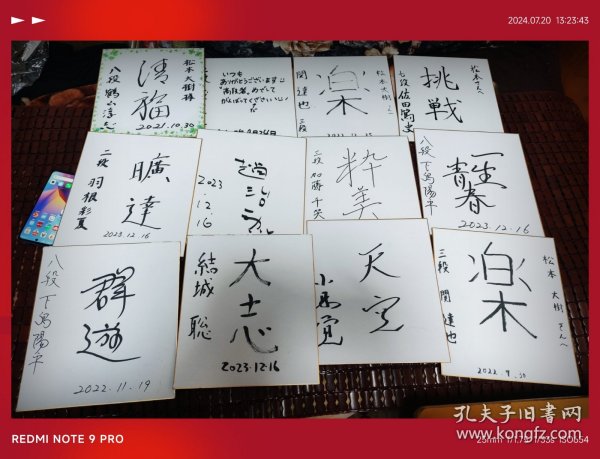 2024.07.20 13:23:43
松本大樹様
清福
八段 鶴山淳志
2021.10.30
いつも
ありがとうございます
高段者、めざして
がんばってくださいね
松本大樹さんへ
楽
関達也 三段
松本さんへ
挑戦
七段 佐田篤史
曠達
二段 羽根彩夏
2023.12.16
趙治勲
2023
12.16
粋美
二段 加藤千笑
一生青春
八段 下島陽平
2023.12.16
群遊
八段 下島陽平
2022.11.19
大志
結城 聡
2023.12.16
天空
小松覚
松本 大樹さんへ
楽
三段 関達也
2022.9.30
REDMI NOTE 9 PRO
25mm f/1.79 1/33s ISO654
孔夫子旧书网
www.kongfz.com